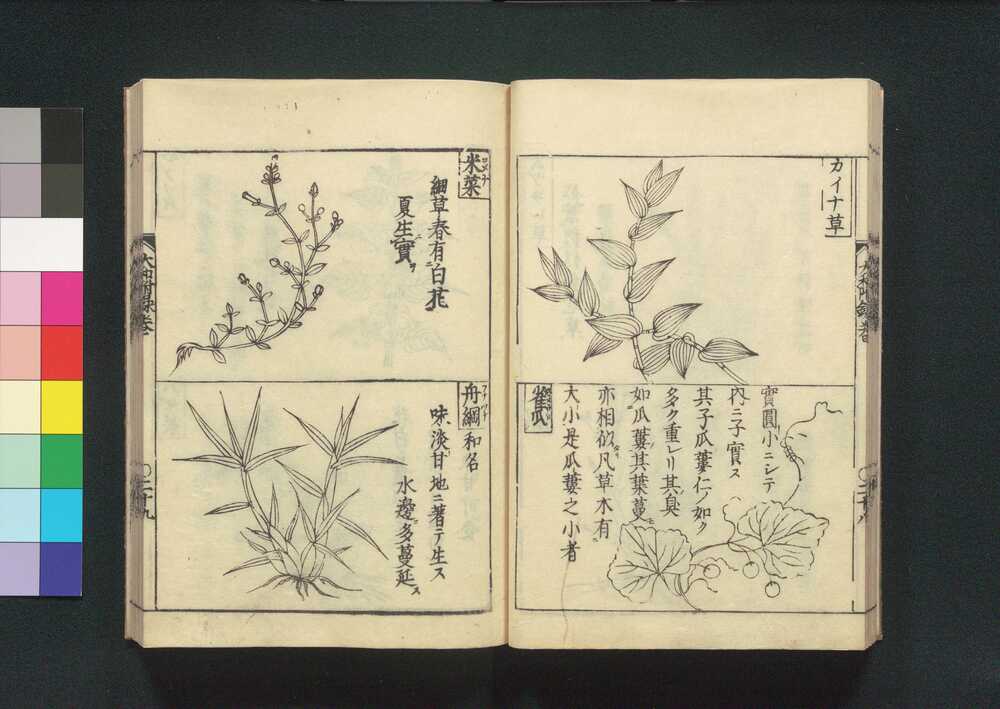 カイナ草
雀瓜
實圓小ニシテ
内ニ子實ス
其子瓜蔞仁ノ如ク
多ク重レリ其臭
如瓜蔞其葉蔓
亦相似凡草木有
大小是瓜蔞之小者
米菜
細草春有白花
夏生實
舟綱
和名
味淡甘地ニ著テ生ス
水邊多蔓延ス
二十九